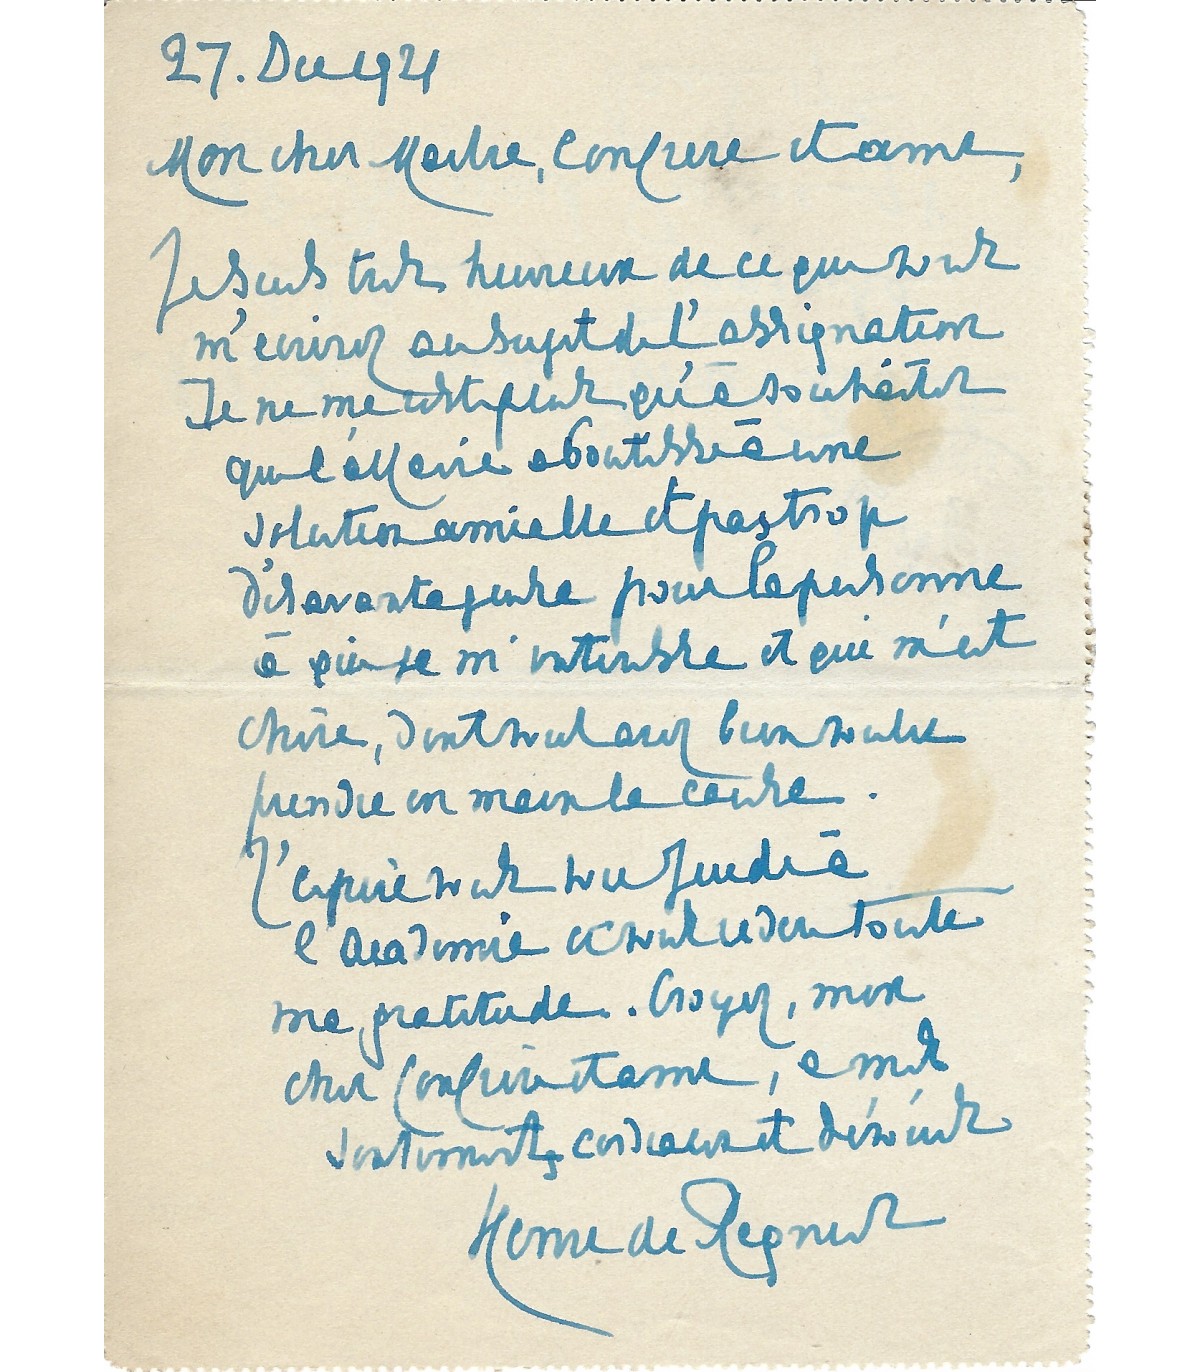 27. Dec 1921
Mon cher Maitre, Confrere et ami,
Je suis très heureux de ce que vous
m'écrivez au sujet de l'assignation
Je ne me plus qu'à souhaiter
que l'affaire aboutisse à une
solution amicale et pas trop
désavantageuse pour la personne
à qui je m'intéresse et qui m'est
chère, dont vous avez bien voulu
prendre en main la cause.
J'espère vous voir jeudi à
l'Académie et vous redire toute
ma gratitude. Croyez, mon
cher Confrère et ami, à mes
sentiments cordiaux et dévoués
Henri de Regnier